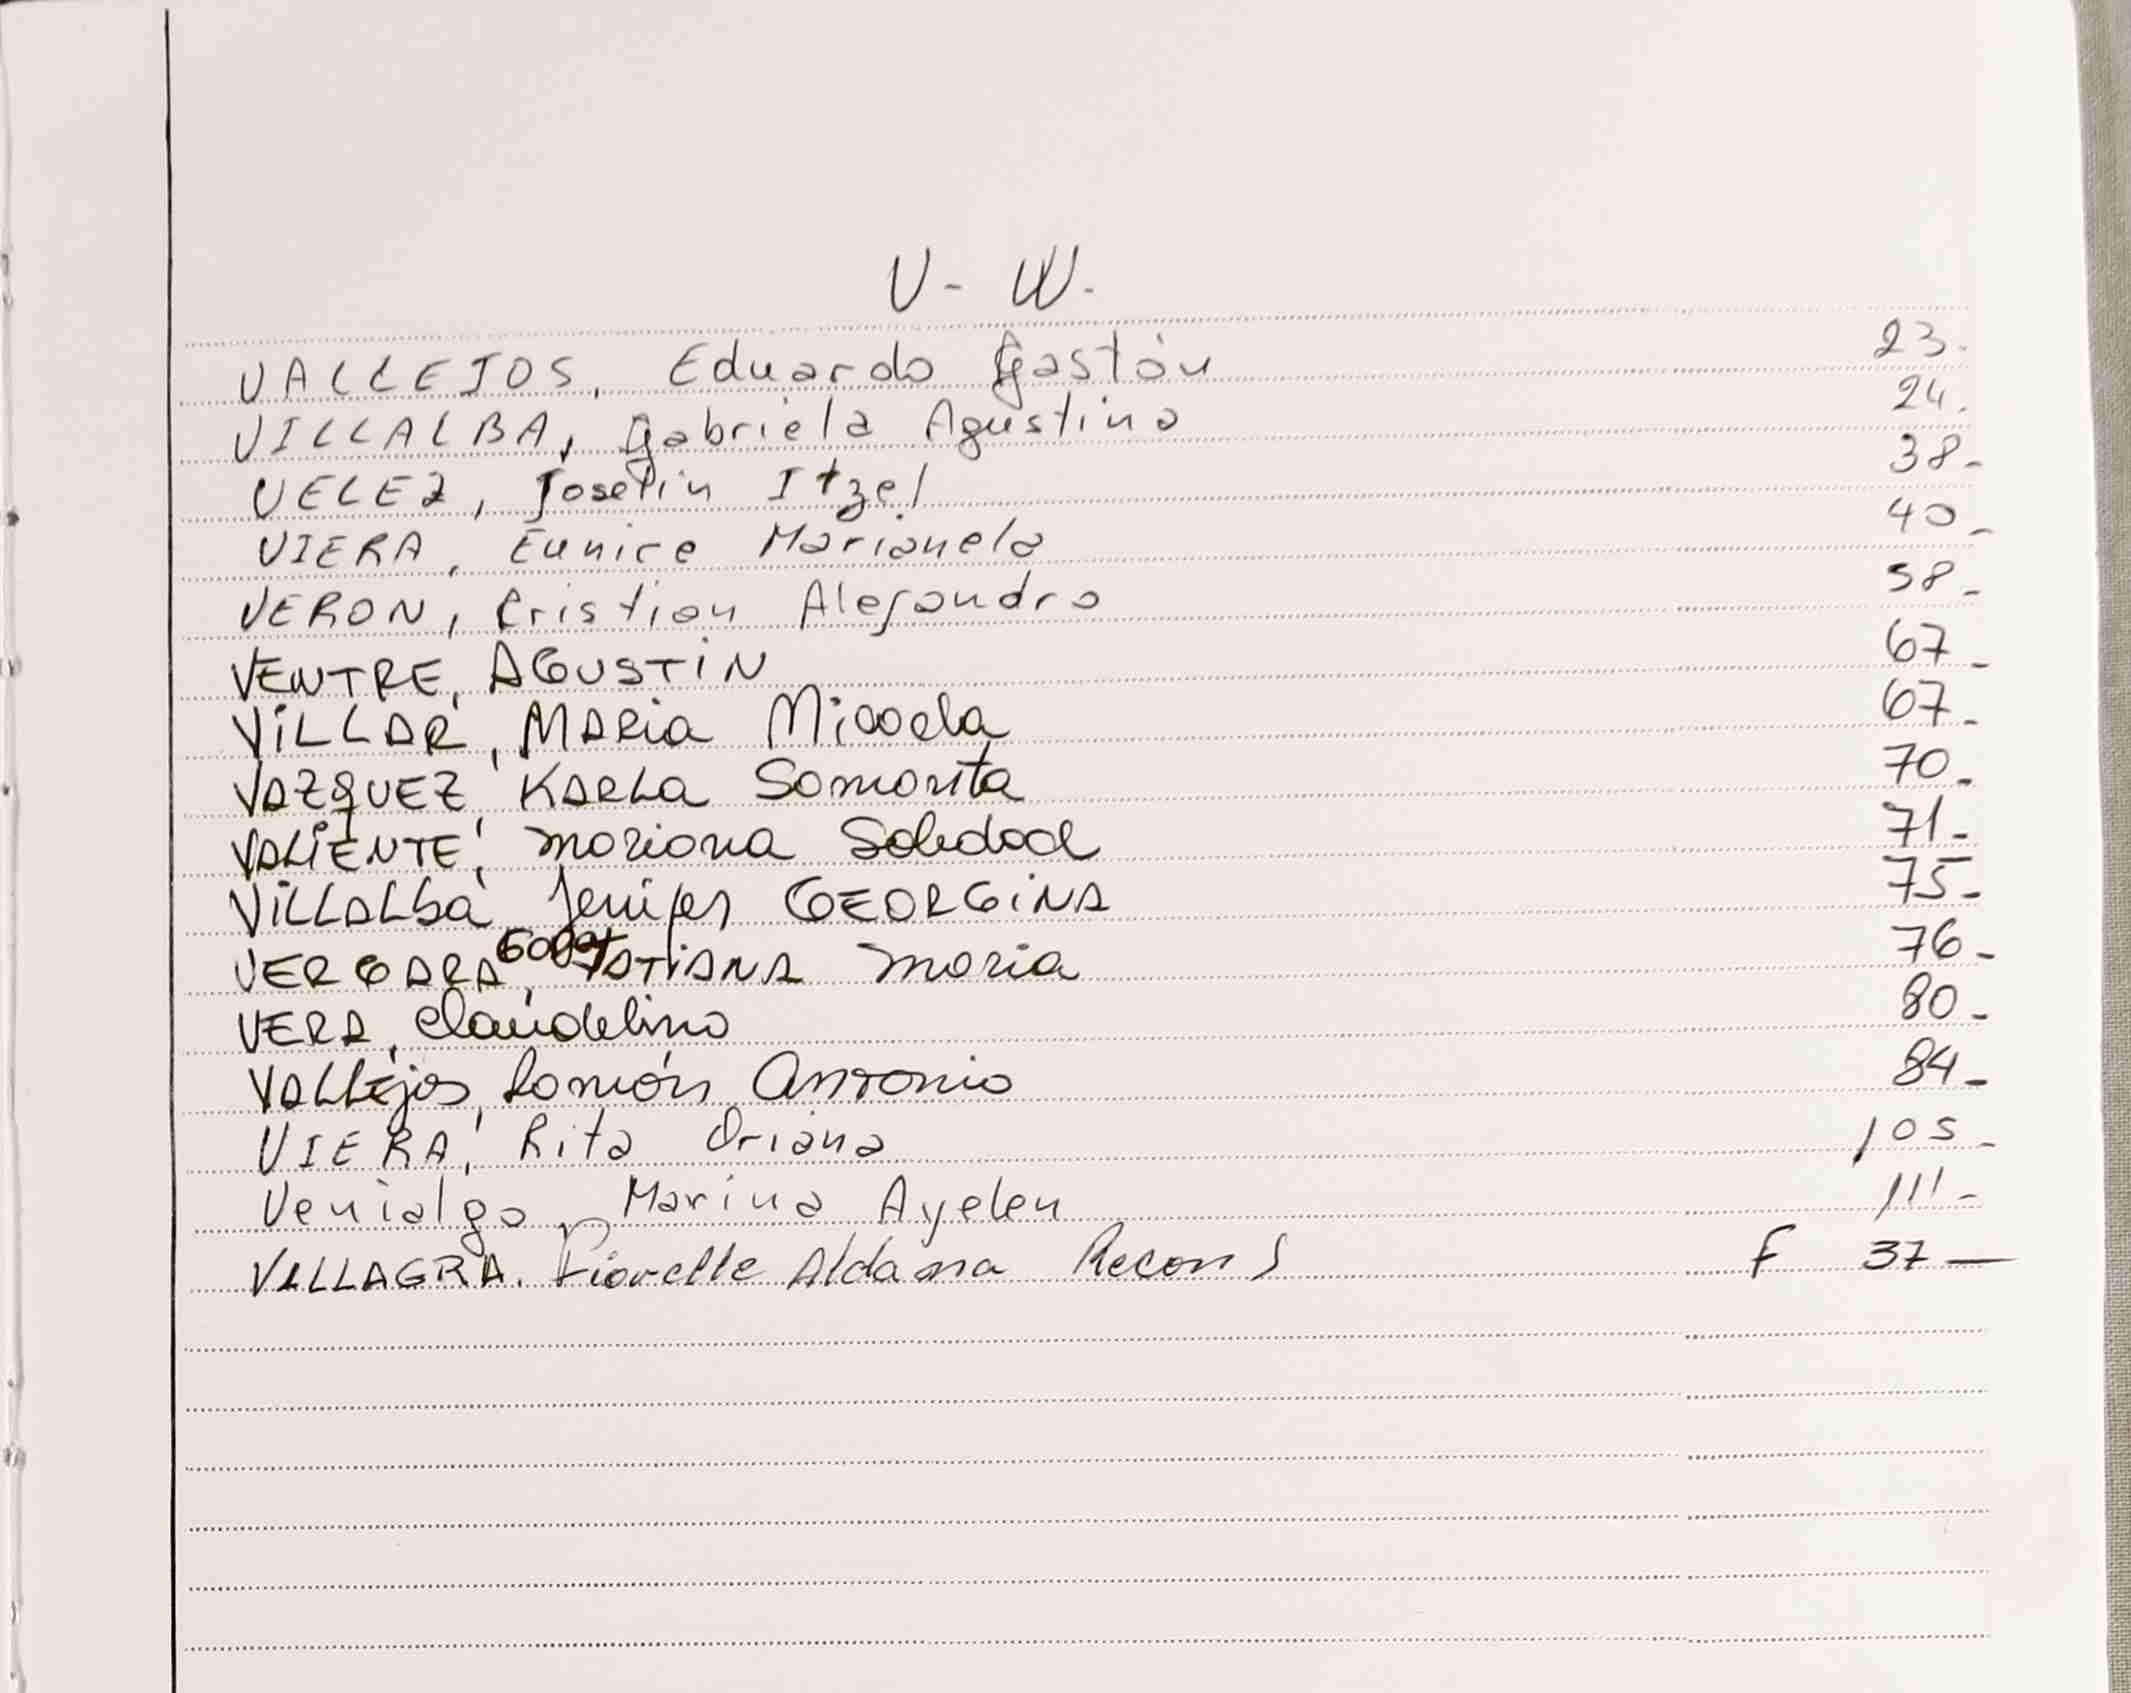 V - W.
VALLEJOS, Eduardo Gastón 23.
VILLALBA, Gabriela Agustina 24.
VELEZ, Joselin Itzel 38-
VIERA, Eunice Marianela 40-
VERON, Cristian Alejandro 58-
VENTRE, AGUSTIN 67-
ViLLAR, MARia Micaela 67-
VAZQUEZ, KARLa Samanta 70-
VALIENTE, mariana Soledad 71-
ViLLALba Jenifer GEORGINA 75-
VERGARA, TATIANA maria 76-
VERA, Claudelino 80-
VALLEjos, Ramón Antonio 84-
VIERA, Rita Oriana 105-
Venialgo, Marina Ayelen 111-
VILLAGRA. Fiorelle Aldana Recon S F 37-